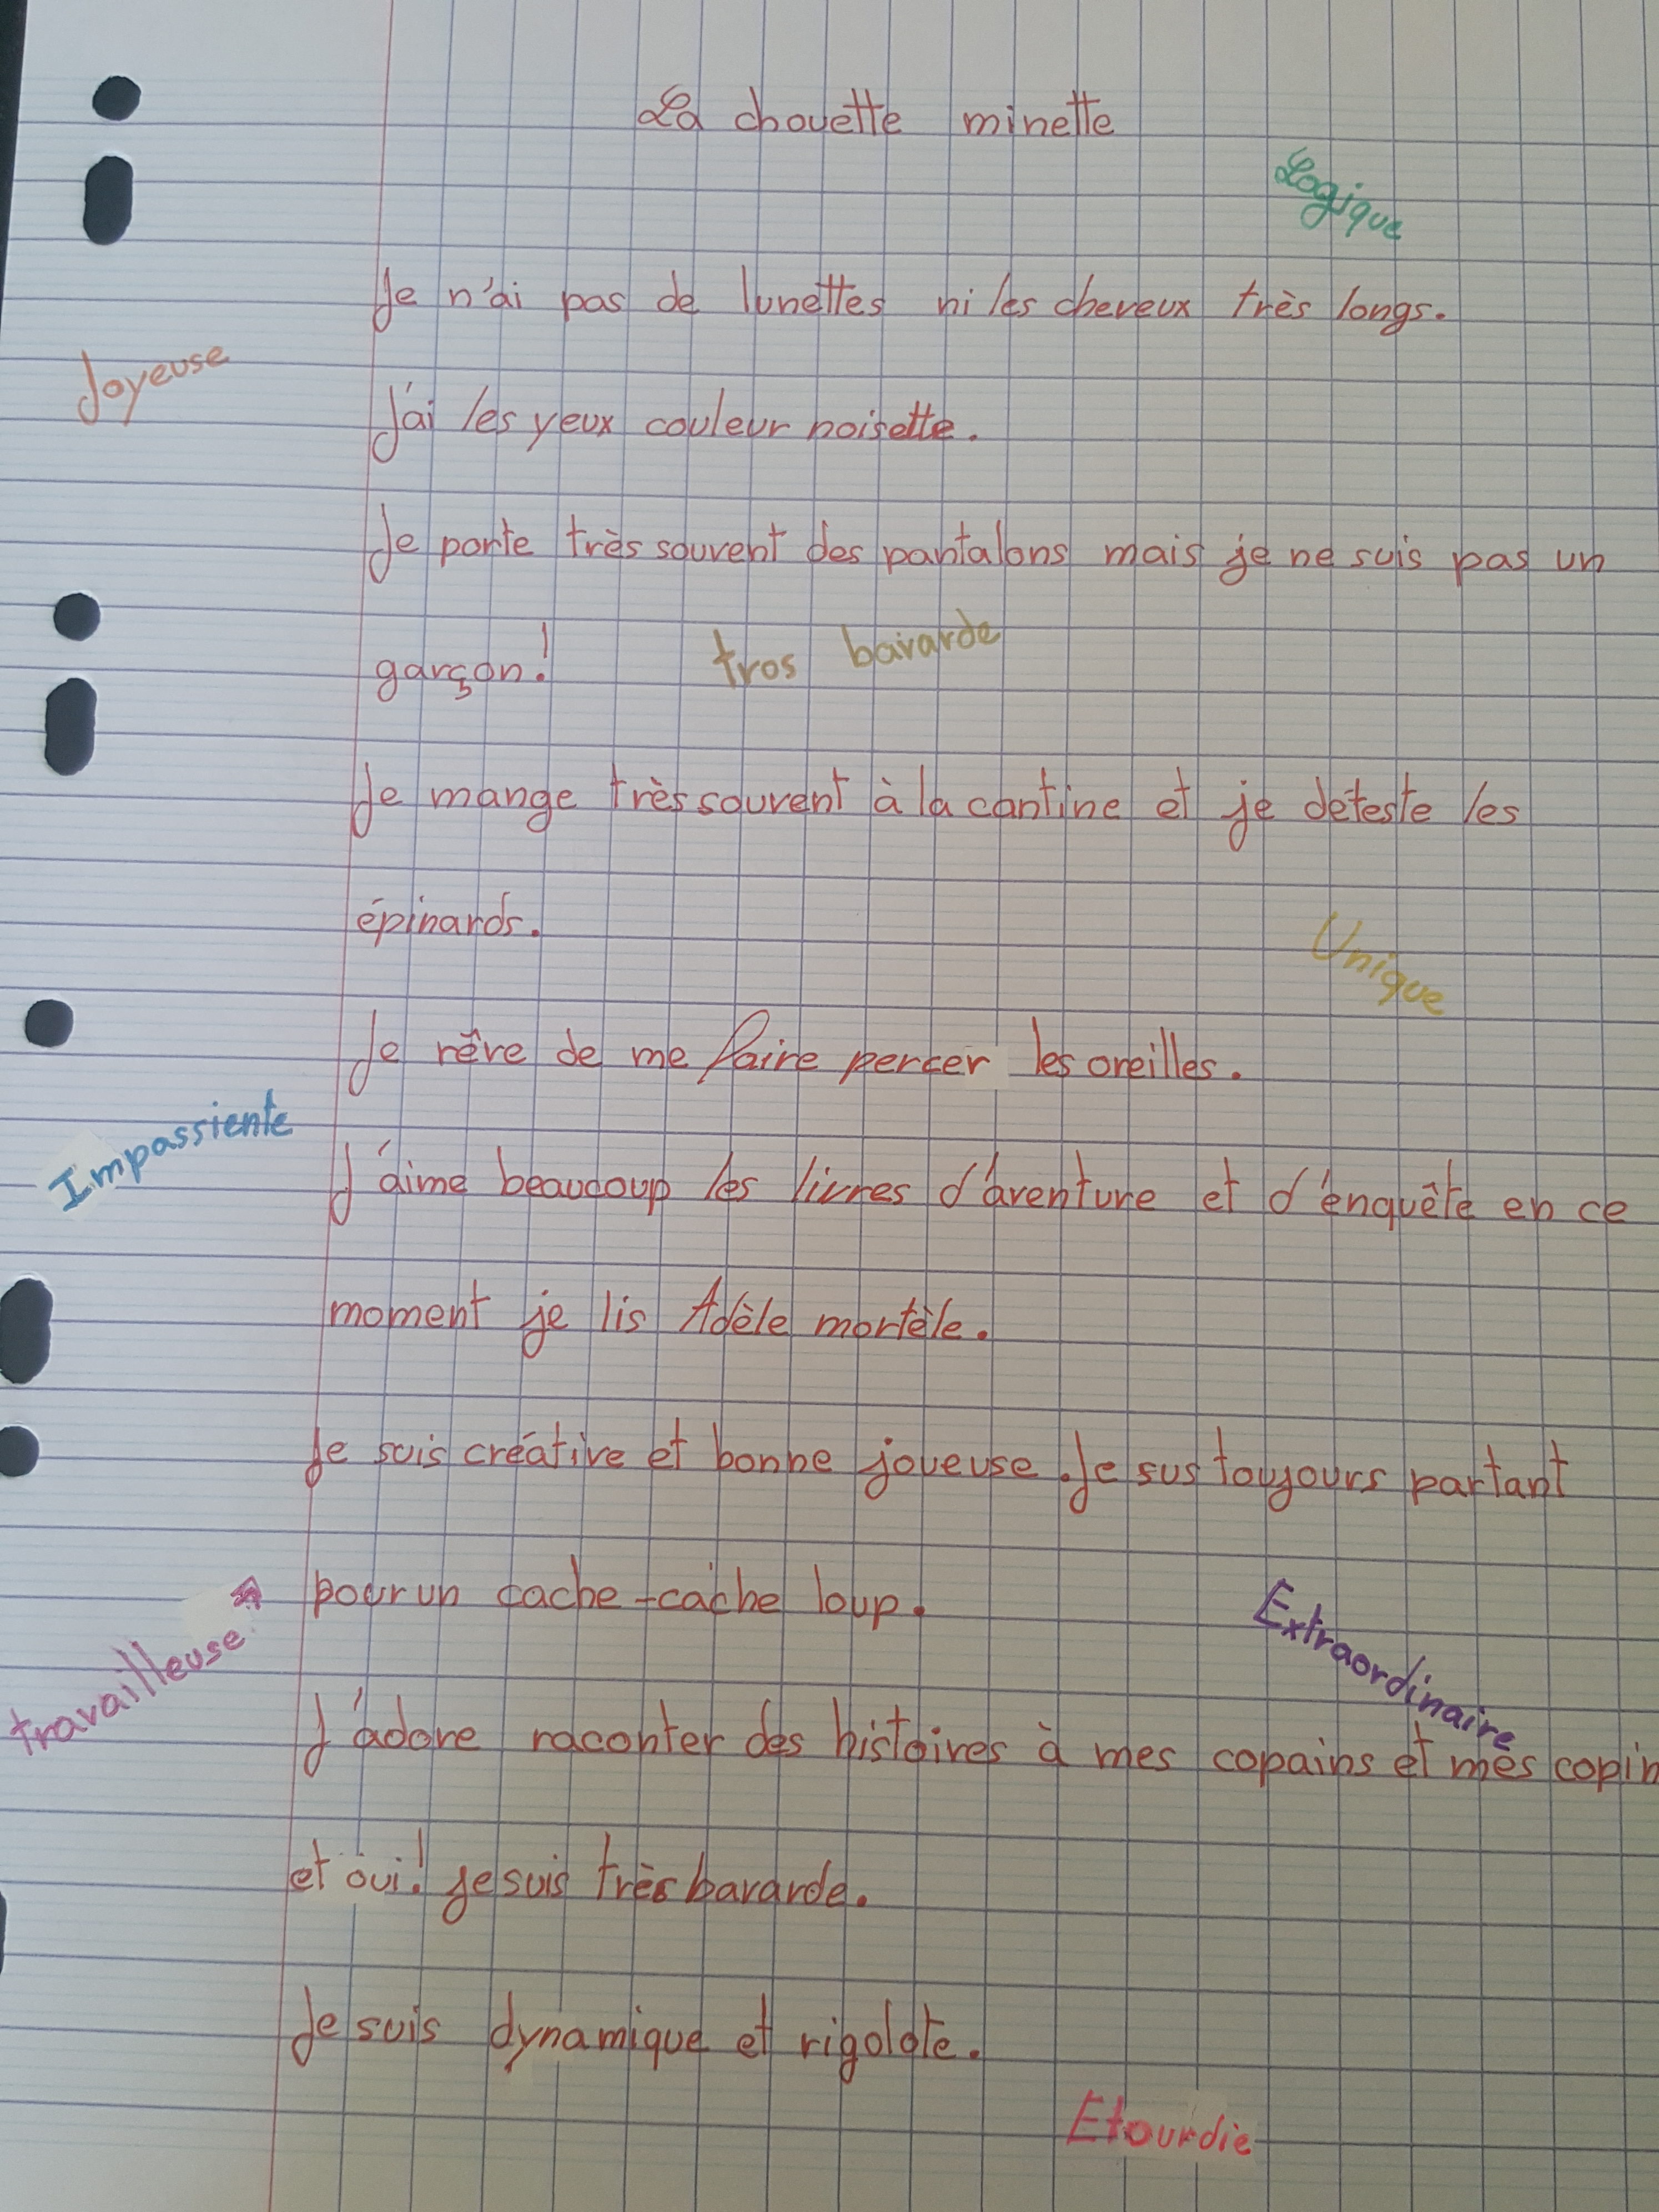 La chouette minette
Logique
Je n'ai pas de lunettes ni les cheveux très longs.
Joyeuse
J'ai les yeux couleur noisette.
Je porte très souvent des pantalons mais je ne suis pas un
garçon!
tros bavarde
Je mange très souvent à la cantine et je déteste les
épinards.
Unique
Je rêve de me faire percer les oreilles.
Impassiente
J'aime beaucoup les livres d'aventure et d'enquête en ce
moment je lis Adèle mortèle.
Je suis créative et bonne joueuse. Je sus toujours partant
pour un cache-cache loup.
travailleuse
Extraordinaire
J'adore raconter des histoires à mes copains et mes copin
et oui! je suis très bavarde.
Je suis dynamique et rigolote.
Etourdie